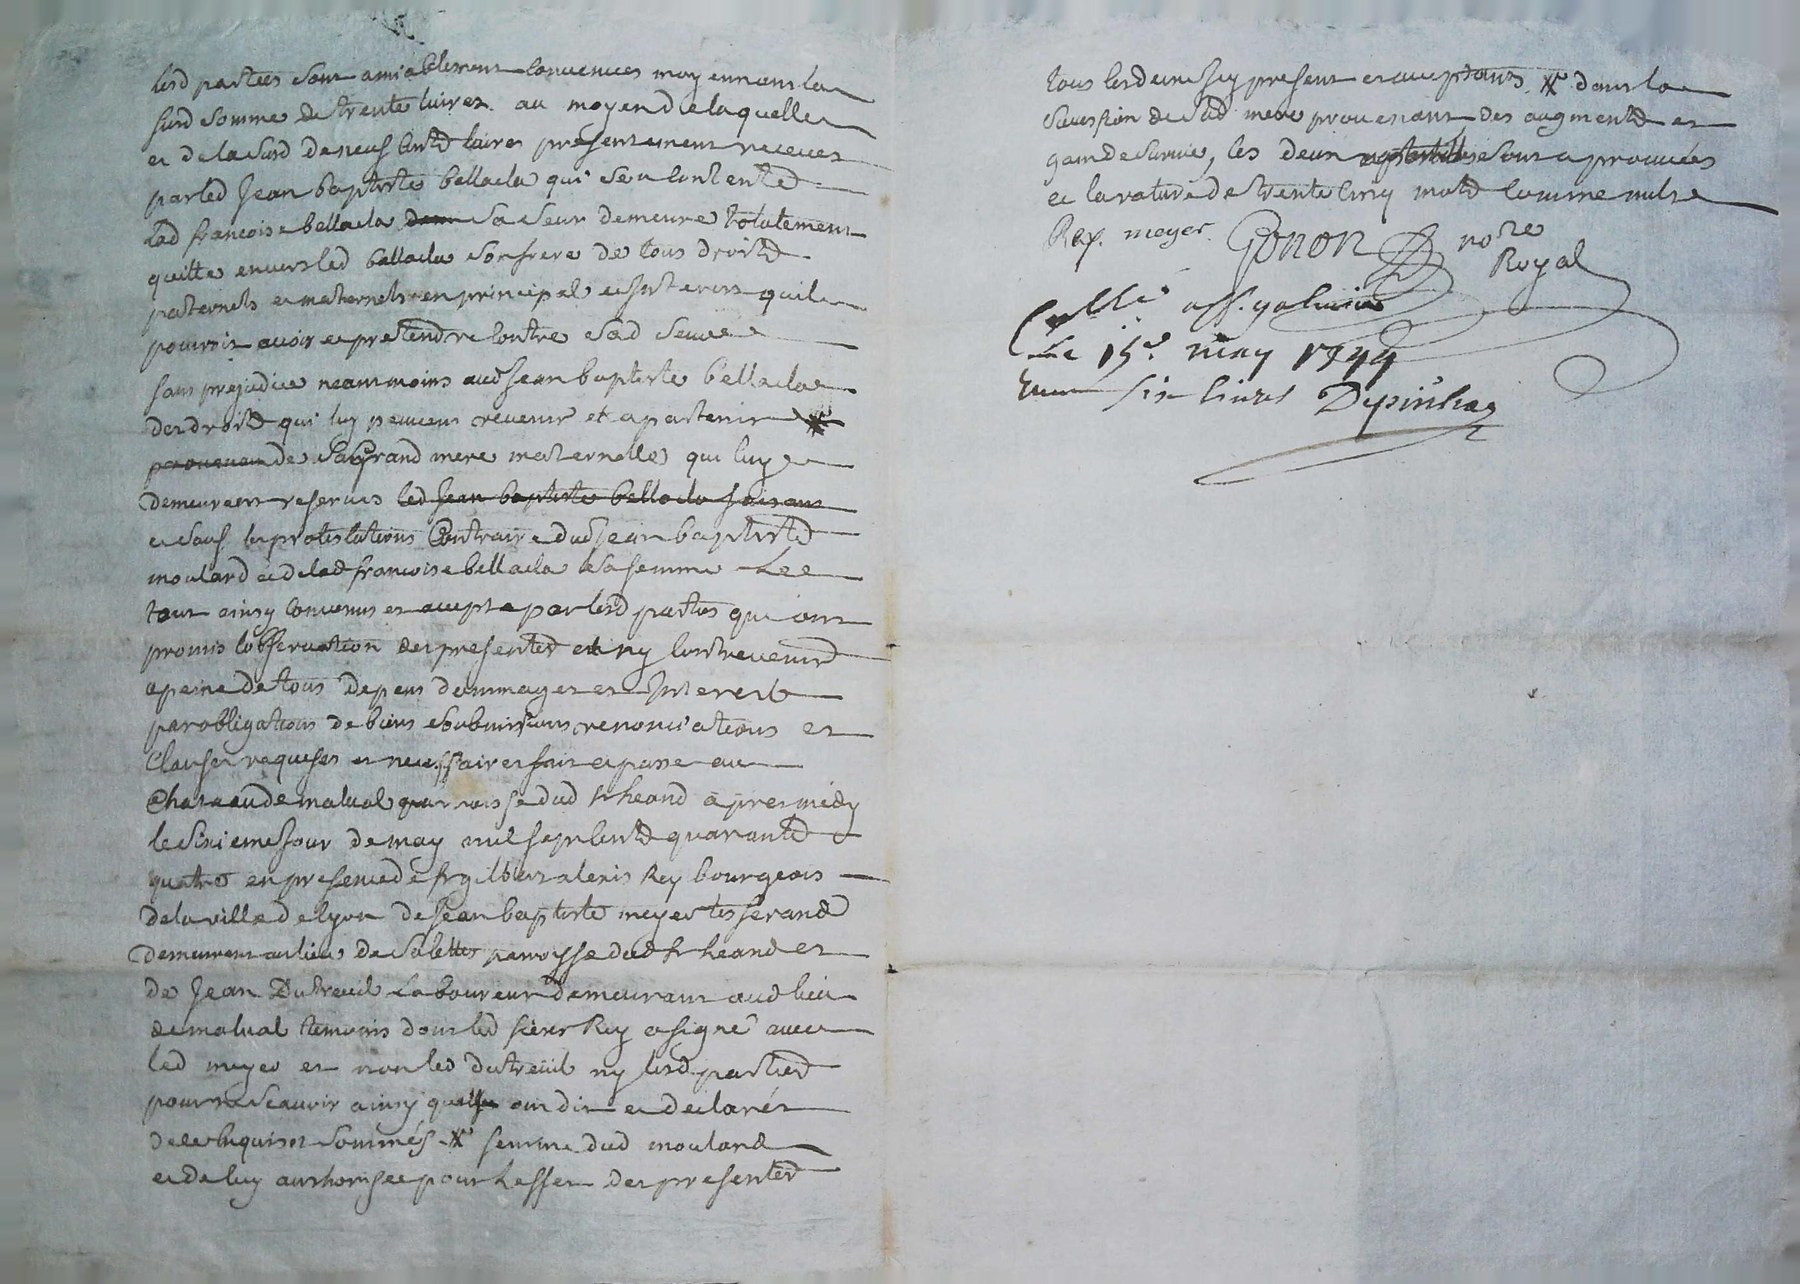 lesd parties sont amiablement convenues moyennant la
susd somme de trente livres au moyen de laquelle
et de la susd de neuf cents livres presentement receues
par led Jean baptiste bellacla qui se contente
lad francoise bellacla sa seur demeure totalement
quitte envers led bellacla son frere de tous droits
paternels et maternels en principal et interets quil
pouvoit avoir et pretendre contre sad seure
sans prejudice neammoins aud Jean baptiste bellacla
des droits qui luy peuvent revenir et apartenir
provenant de sa Grand mere maternelle qui luy
demeurent reservés led Jean baptiste bellacla faisant
et sauf les protestations Contraire dud Jean baptiste
moulard et de lad francoise bellacla sa femme Le
tout ainsy convenus et accepte par lesd parties qui ont
promis lobservation des presentes et ny contrevenir
a peine de tous depens dommages et Interests
par obligations de biens soubmissions renonciations et
Clauses requises et necessaires fait et passe au
Chateau de malval parroisse dud st heand apres midy
le sixieme Jour de may mil sept cents quarante
quatre en presence de sr gilbert alexis Rey bourgeois
de la ville de lyon de Jean baptiste meyer tisserand
demeurant au lieu de Salettes parroisse dud st heand et
de Jean Dutreuil Laboureur demeurant aud lieu
de malval temoins dont led sieur Rey a signé avec
led meyer et non led dutreuil ny lesd parties
pour ne scavoir ainsy ont dit et declarés
de ce enquis et sommés X femme dud moulard
et de luy authorisee pour Leffet des presentes
tous lesdeux icy present et acceptants X dans la
succession de sad mere provenant des augments et
gain de survie, les deux apostilles sont aprouvées
et la rature de trente cinq mots comme nulle
Rey. meyer. Gonon nore
Royal
Collé a st. galmier
Le 15e may 1744
six livres Depinhac